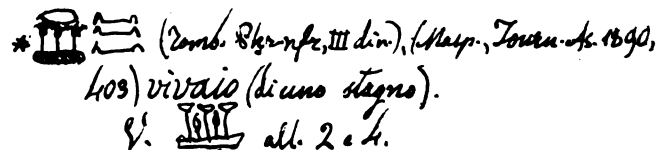 * (Tomb. Phr-nfr, III din.), (Masp., Journ. As. 1890,
403) vivaio (di uno stagno).
V. all. 2 e 4.